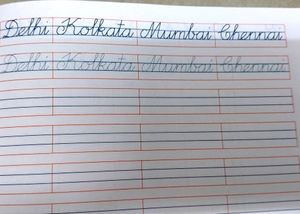 Delhi Kolkata Mumbai Chennai
Delhi Kolkata Mumbai Chennai